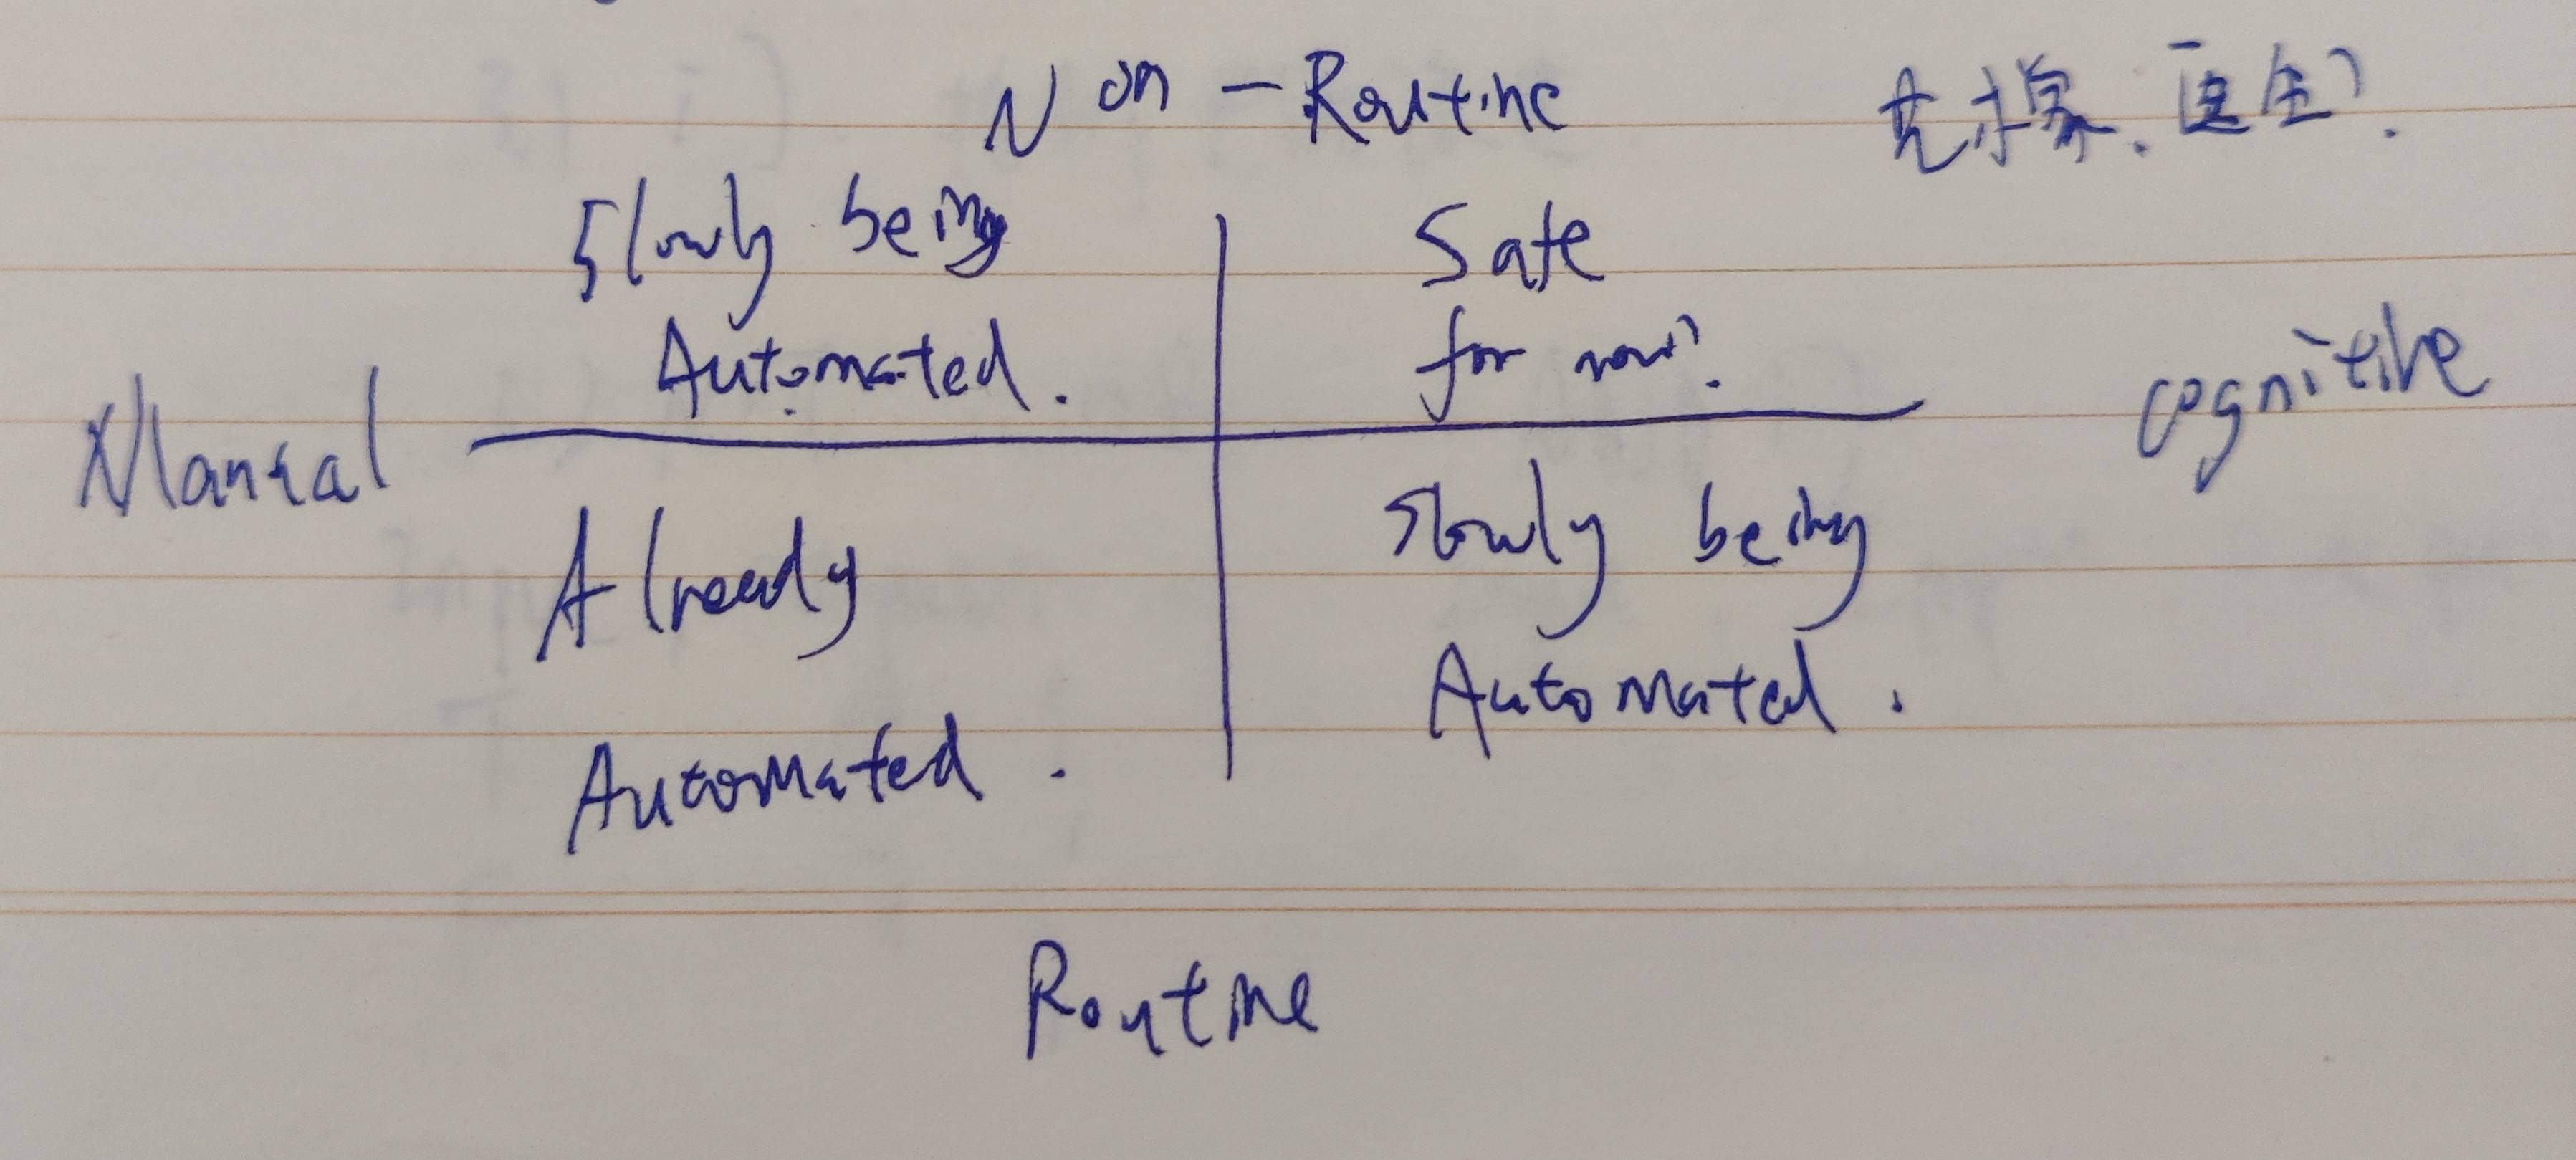 Non-Routine
艺术家、医生?
Slowly being
Automated.
Safe
for now?
Manual
cognitive
Already
Automated.
Slowly being
Automated.
Routine